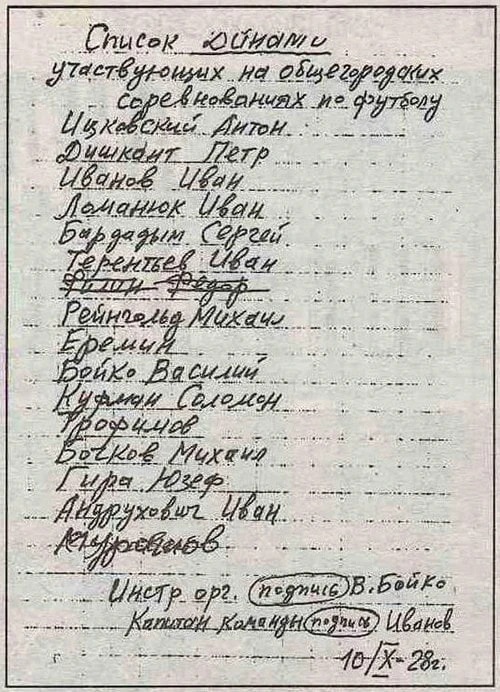 Список Дінами
участвующих на общегородских
соревнованиях по футболу
Ицковский Антон
Дишкант Петр
Иванов Иван
Ломанюк Иван
Бардадым Сергей
Терентьев Иван
Филин Фёдор
Рейнгольд Михаил
Еремин
Бойко Василий
Курман Соломон
Трофимов
Бочков Михаил
Гира Юзеф
Андрухович Иван
Инстр орг. подпись В. Бойко
Капитан команды подпись Иванов
10/X-28г.